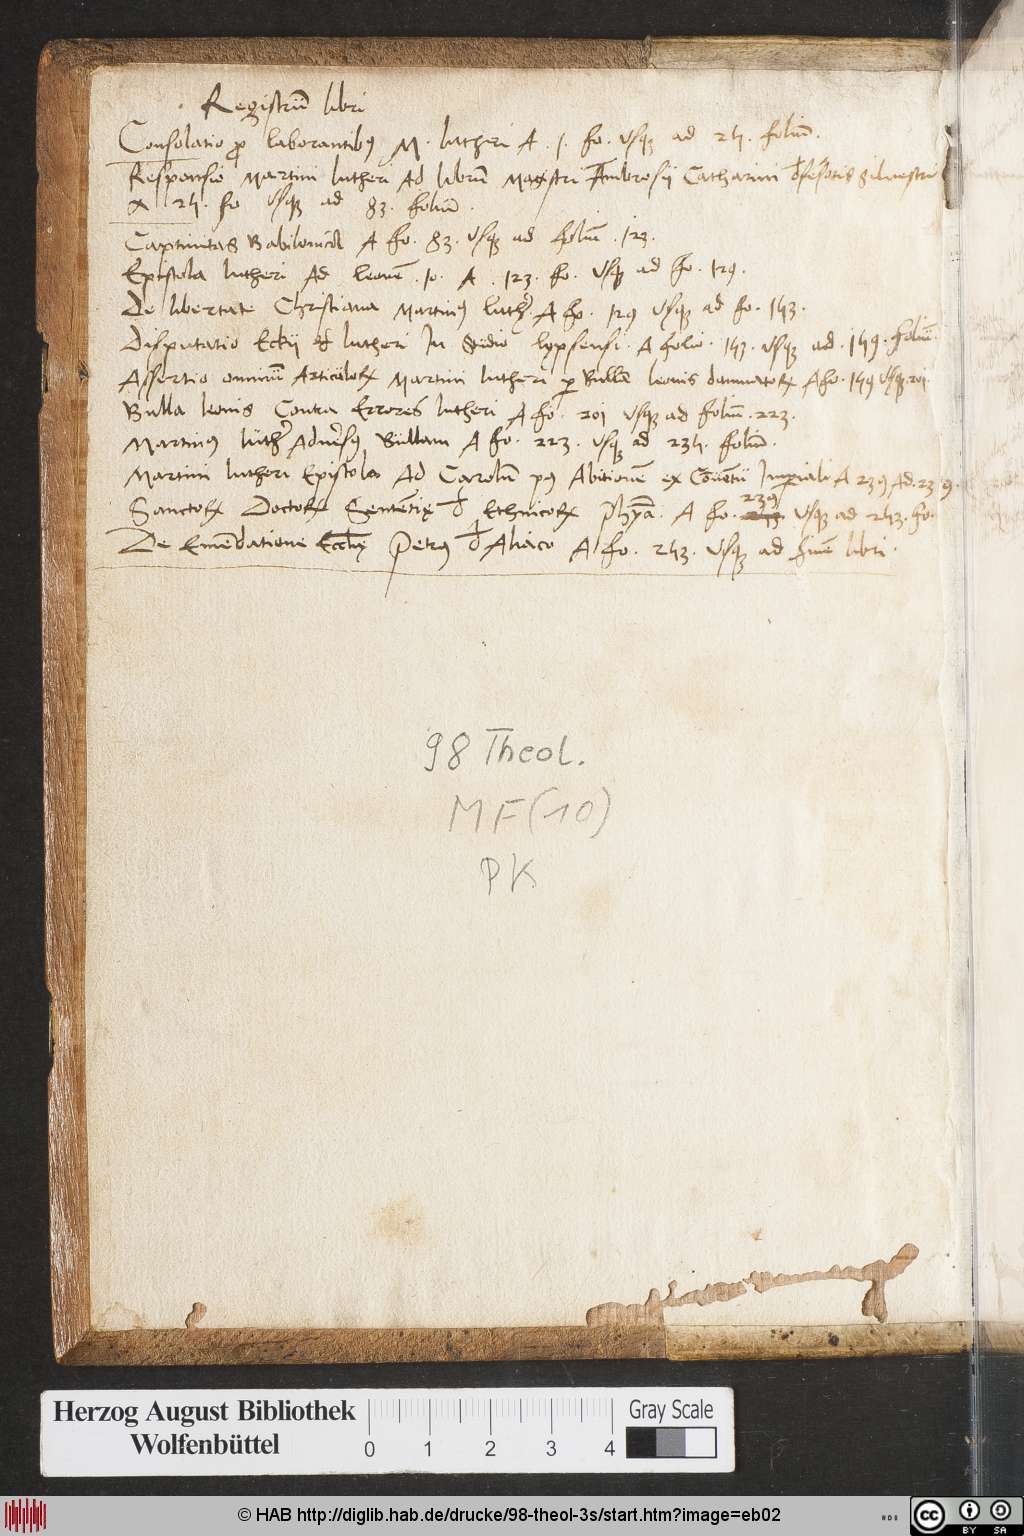 Registrũ libri
Consolatio ꝓ laborantibꝰ M. lutheri A . 1 . fo. vsqꝫ ad 24. foliũ.
Responsio Martini lutheri Ad librũ Magistri Ambrosij Catharini dfēsoris Siluestri
A 24. fo vsqꝫ ad 83. foliũ.
Captiuitas Babilonica A fo. 83. vsqꝫ ad foliũ . 123.
Epistola lutheri Ad leonē .10. A . 123. fo. vsqꝫ ad fo. 129.
De libertate Christiana Martinꝰ luther A fo. 129 vsqꝫ ad fo. 143.
Disputatio Eckij & lutheri In Studio lypsensi. A folio. 143. vsqꝫ ad. 149. foliũ.
Assertio omniũ Articuloꝝ Martini lutheri ꝑ Bullā leonis damnatoꝝ A fo. 149 vsqꝫ. 201
Bulla leonis Contra Errores lutheri A fo. 201 vsqꝫ ad foliũ. 223.
Martinꝰ luther Aduersꝰ Bullam A fo. 223. vsqꝫ ad 234. foliũ.
Martini lutheri Epistola Ad Carolũ pꝰ Abitionē ex Cōuentu Imperiali A 239 Ad. 239.
Sanctoꝝ Doctoꝝ Sententię & Ethnicoꝝ A fo. 239 vsqꝫ ad 243. fo.
De Emēdatione Ecclię Petrꝰ d Aliaco A fo. 243. vsqꝫ ad finē libri.
98 Theol.
MF (10)
PK
Herzog August Bibliothek
Wolfenbüttel
0 1 2 3 4
Gray Scale
© HAB http://diglib.hab.de/drucke/98-theol-3s/start.htm?image=eb02
cc BY SA